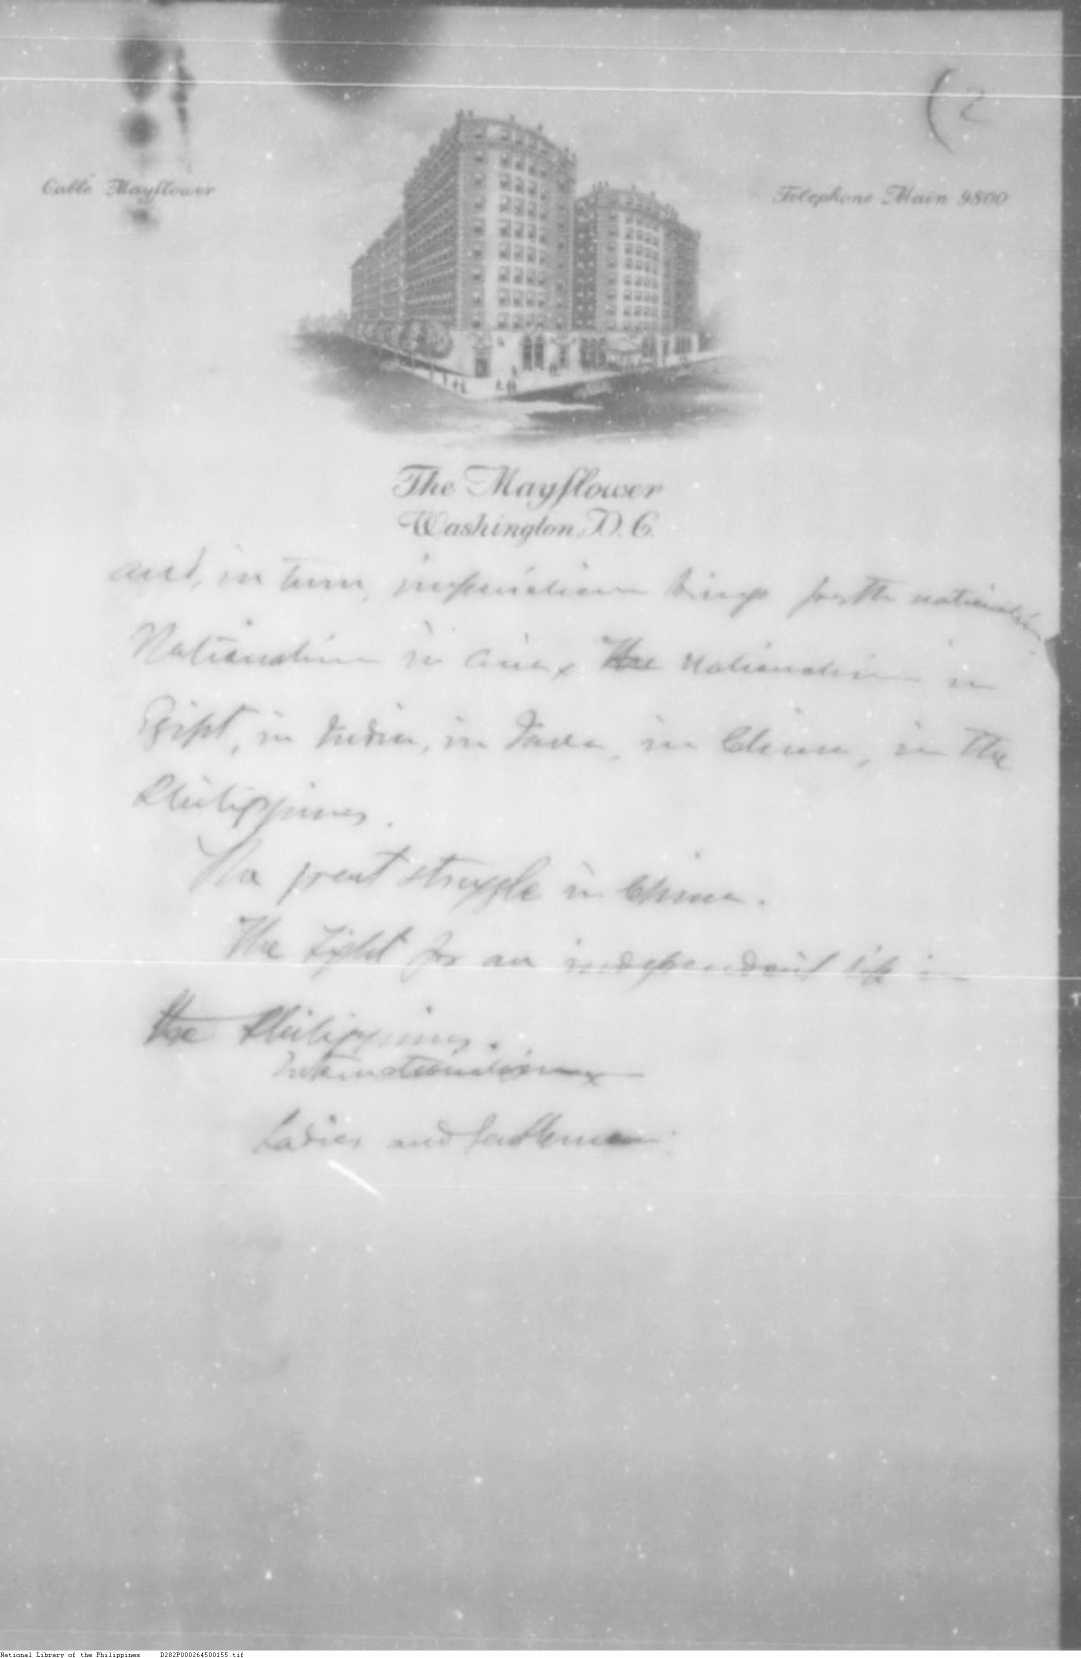 (2
Cable Mayflower
Telephone Main 9800
The Mayflower
Washington, D.C.
and, in turn, imperialism brings forth nationalism
Nationalism in The nationalism in
Egipt, in India, in Java, in China, in the
Philippines.
The great struggle in China.
The fight for an independent life in
the Philippines.
Internationalism
Ladies and Gentlemen:
National Library of the Philippines D282P000264500155.tif